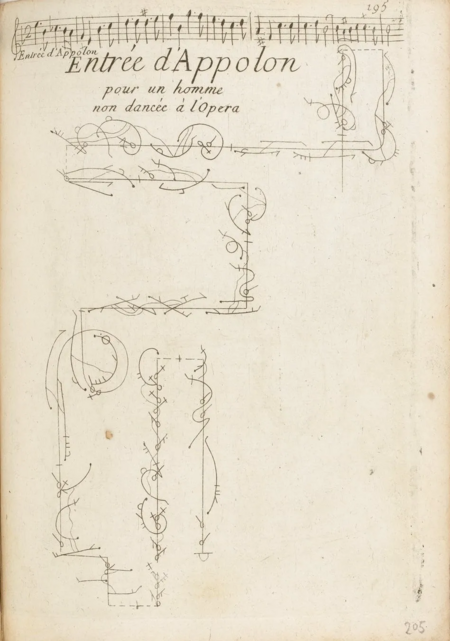 195
Entrée d'Appolon
Entrée d'Appolon
pour un homme
non dancée à l'Opera
205